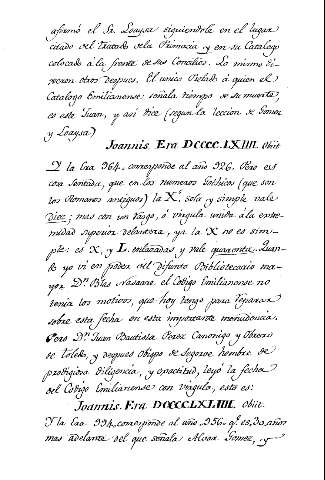 afirmó el Sr. Loaysa siguiendole en el lugar
citado del tratado dela Primacia, y en su Catalogo
colocado à la frente de sus Concilios. Lo mismo di-
xeron otros despues. El unico Prelado à quien el
Catalogo Emilianense señala tiempo de su muerte,
es este Juan, y asi dice (segun la leccion de Gomez
y Loaysa)
Joannis. Era DCCCC.LXIIII. Obiit
Y la Era 964. corresponde al año 926. Pero es
cosa sentida, que en los numeros Gothicos (que son
los Romanos antiguos) la X. sola y simple vale
diez; mas con un rasgo, ó virgula unida à la extre-
midad superior delantera, ya la X no es sim-
ple: es X, y L. enlazadas y vale quarenta. Quan-
do yo vi en poder del difunto Bibliotecario ma-
yor Dn. Blas Nasarre el Codigo Emilianense no
tenia los motivos, que hoy tengo para reparar
sobre esta fecha en esta importante menudencia.
Pero Dn. Juan Bautista Perez Canonigo y Obrero
de toledo, y despues Obispo de Segorve hombre de
prodigiosa diligencia, y exactitud, leyó la fecha
del Codigo Emilianense con virgula, esto es:
Joannis. Era DCCCCLXLIIII. Obiit.
Y la Era 994. corresponde al año 956. qe. es 30. años
mas adelante del que señala Alvar Gomez, y